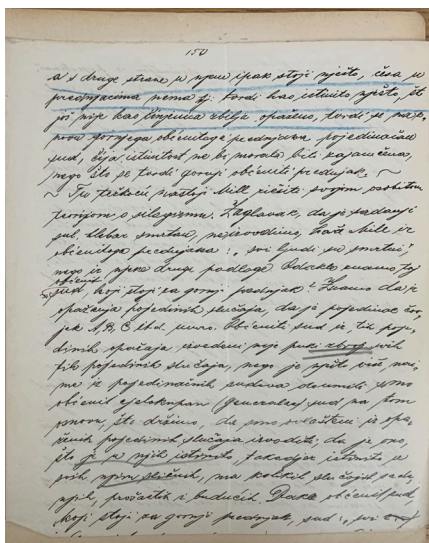 150
a s druge strane u njem ipak stoji nješto, česa u
prednjacima nema tj. tvrdi kao istinito nješto, što
još nije kao činjenica zbilja opaženo, tvrdi se na
osnovu gornjega občenitoga prednjaka, pojedinačan
sud, čija istinitost ne bi morala biti zajamčena,
nego što se tvrdi gornji občeniti prednjak.
Tu težkoću nastoji Mill riešiti svojim osobitom
teorijom o silogizmu. Zaglavak, da je sadanji
sul. dobar smrtan, neizvodimo, kaže Mill iz
občenitoga prednjaka: „svi ljudi su smrtni",
nego iz njeke druge podloge. Odakle znamo taj
občeniti
sud koji stoji za gornji prednjak? Znamo da iz
opažanja pojedinih slučaja, da je pojedinac čov-
jek A, B, C itd. umro. Občeniti sud iz tih poje-
dinih opažaja izvedeni nije puki zbroj svih
tih pojedinih slučaja, nego je nješto više, nai-
me iz pojedinačnih sudova douvodi smo
občenit cjelokupan (generalan) sud na tom
osnovu, što držimo, da smo ovlašteni iz opa-
ženih pojedinih slučaja izvoditi: da je ono,
što je u njih istinito takodjer istinito u
svih njim sličnih, ma kolikih slučajih sada-
njih, prošastih i budućih. Dakle občeniti sud,
koji stoji za gornji prednjak, sud: „svi